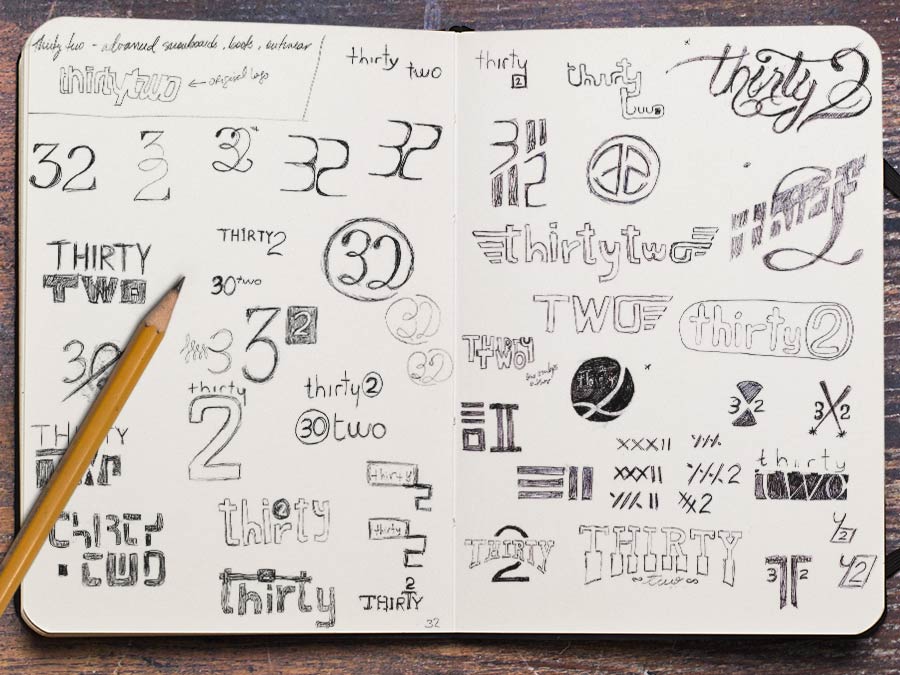 thirty two - advanced snowboards, boots, outerwear
thirtytwo ← original logo
thirty two
32
3
2
32
32
32
THIRTY
TWO
THIRTY2
30two
32
32
32
3
3 2
thirty
2
thirty2
30 two
THIRTY
TWO
thirty
2
thirty
2
THIRTY
TWO
thi2rty
thirty
2
THIRTY
32
thirty
2
thirty
two
thirty 2
3 II
II 2
thirtytwo
TWO
thirty2
THIRTY
TWO
thirty
2
3 2
3X2
XXXII
XXXII
2
X2
thirty
two
THIRTY
2
THIRTY
two
3 T 2
2
2